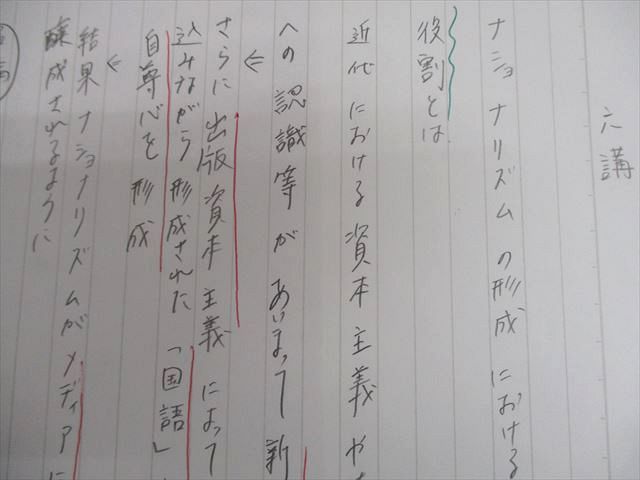 六講
ナショナリズムの形成における
役割とは
近代における資本主義や
への認識等があいまって新
さらに出版資本主義によって
込みながら形成された「国語」
自尊心を形成
結果ナショナリズムがメディアに
醸成されるように